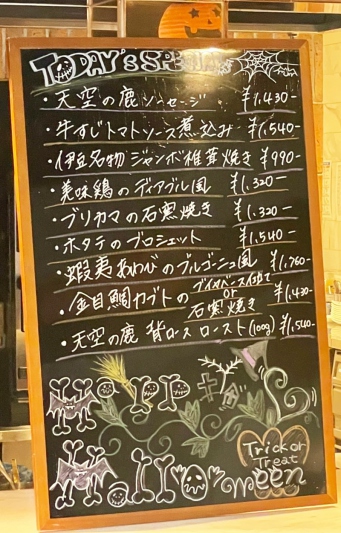 TODAY's SPECIAL
・天空の鹿ソーセージ ¥1,430-
・牛すじトマトソース煮込み ¥1,540-
・伊豆名物ジャンボ椎茸焼き ¥990-
・美味鶏のディアブル風 ¥1,320-
・ブリカマの石窯焼き ¥1,320-
・ホタテのブロシェット ¥1,540-
・蝦夷あわびのブルゴーニュ風 ¥1,760-
・金目鯛カブトのブイヤベース仕立て or 石窯焼き ¥1,430-
・天空の鹿 背ロースロースト(100g) ¥1,540-
Happy
Halloween
Trick or
Treat